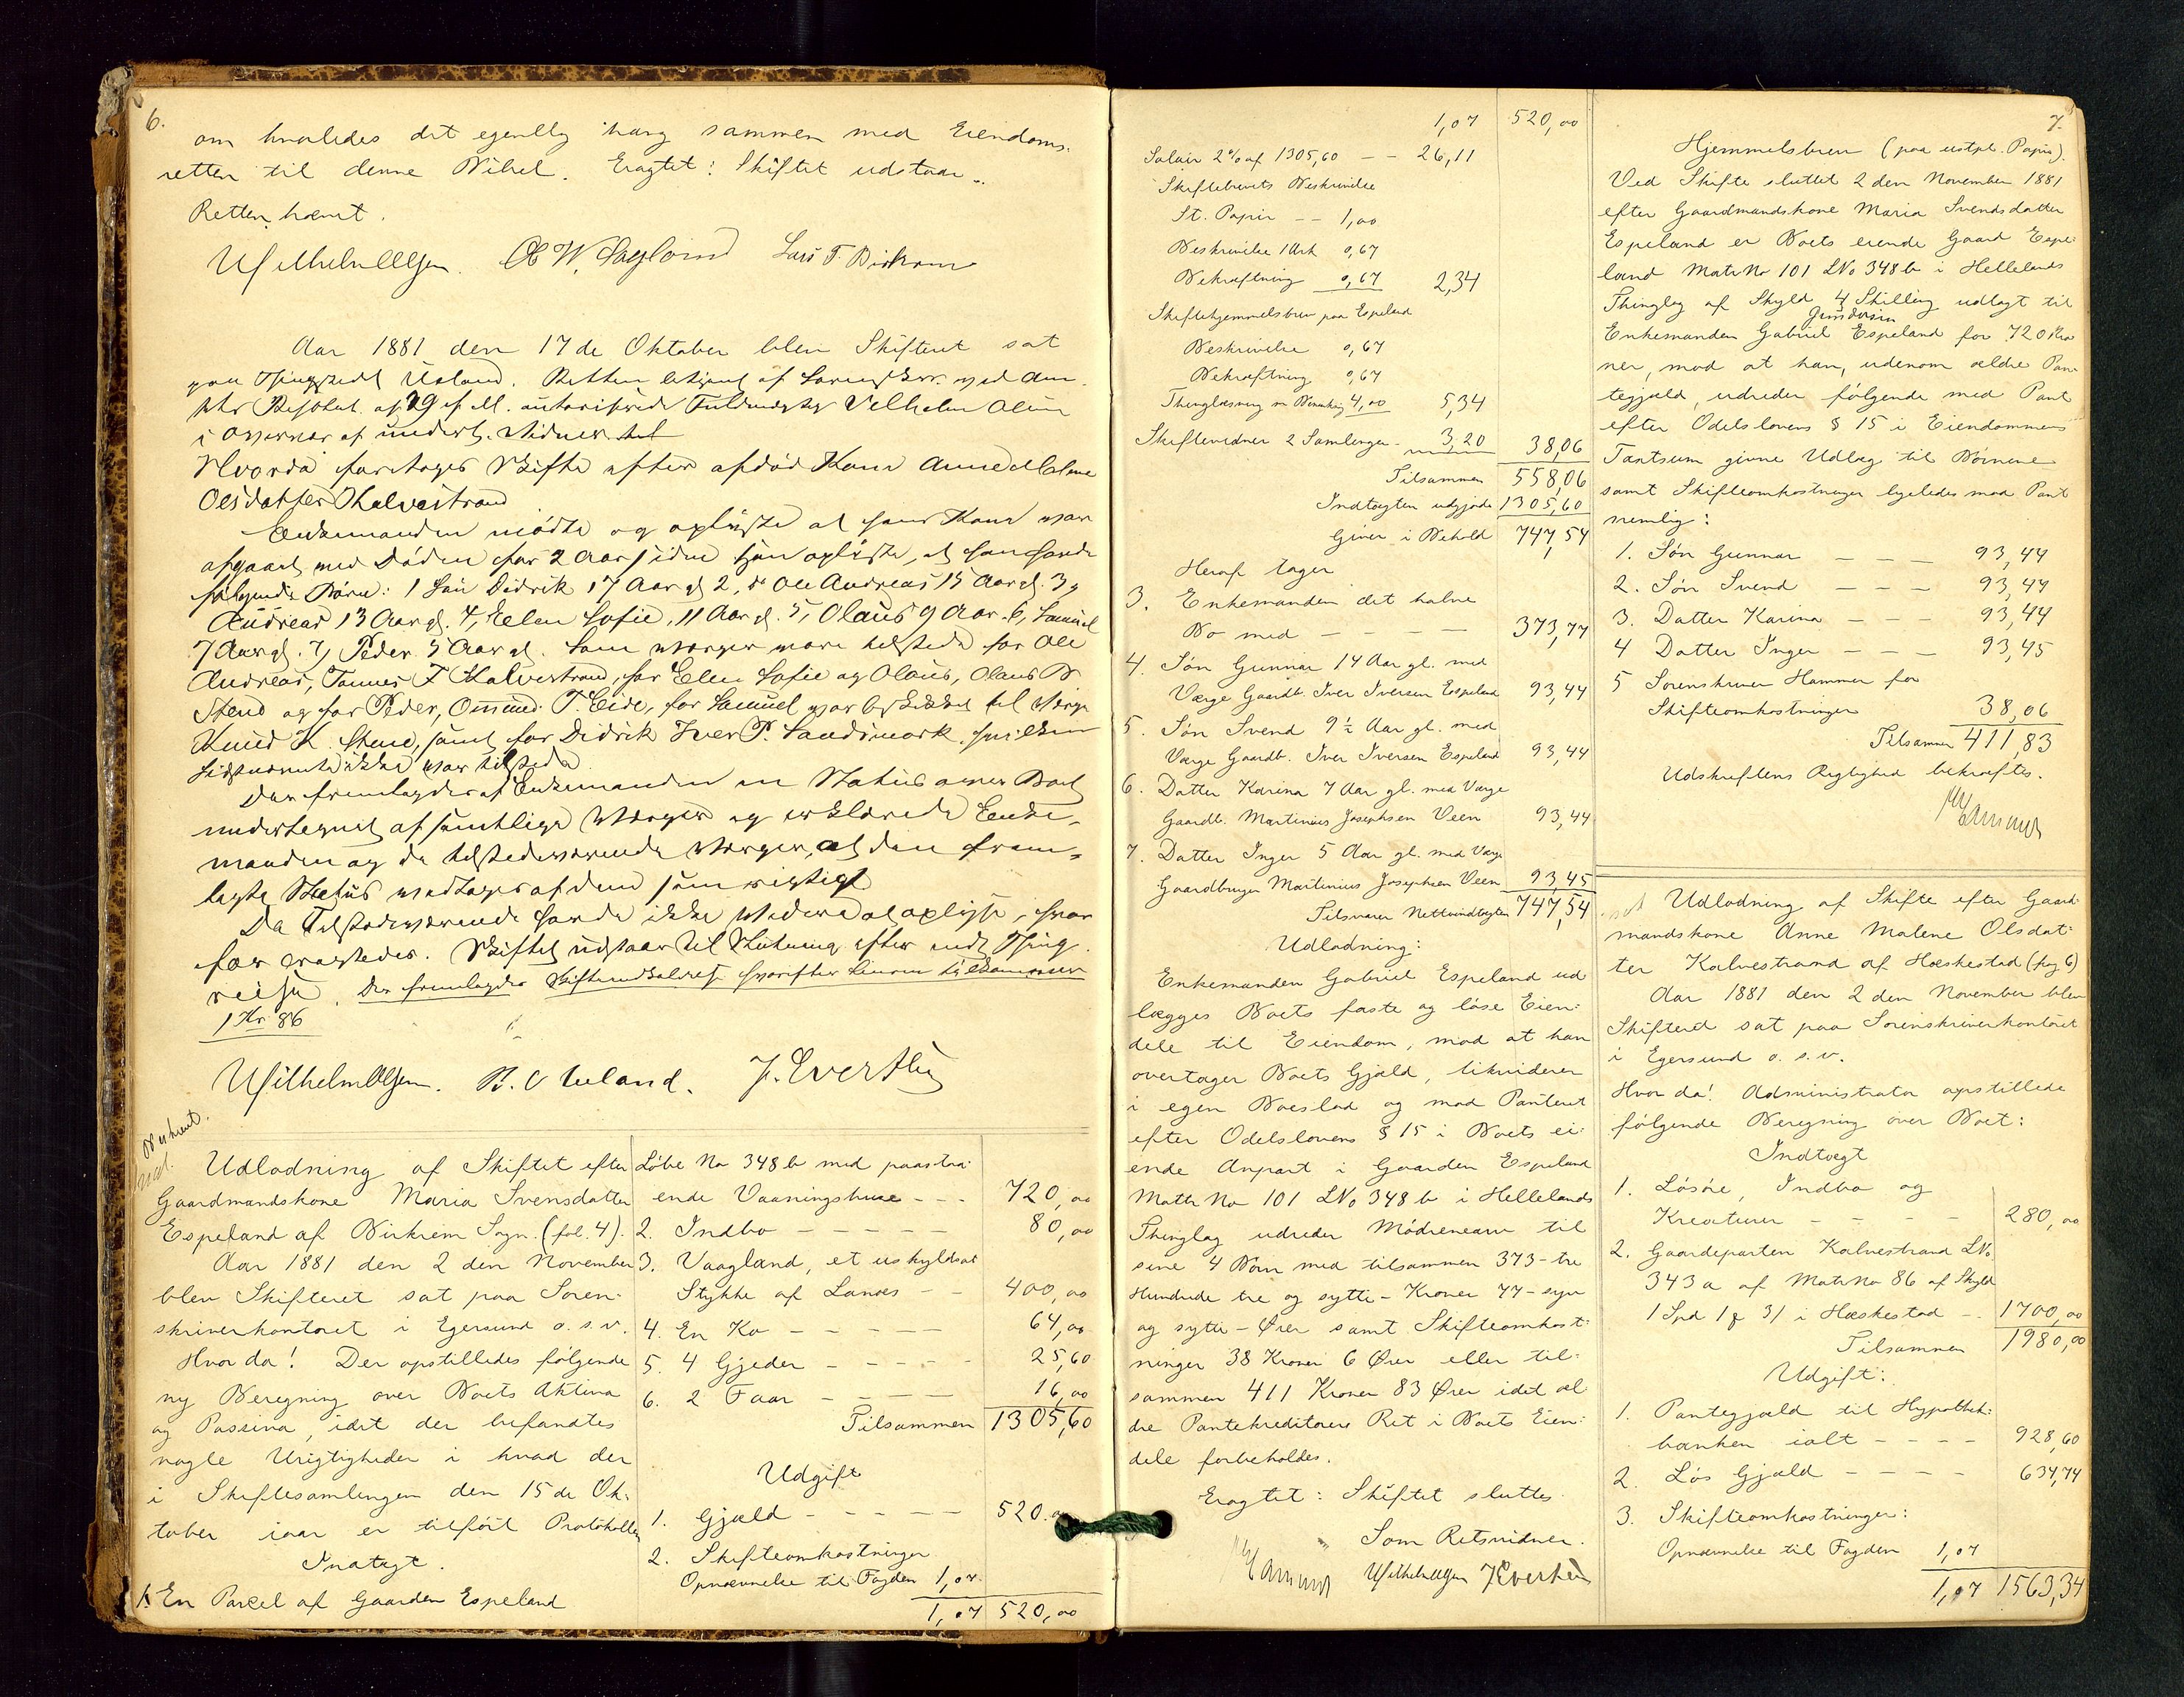 6.
om hvorledes det egentlig hang sammen med Eiendoms-
retten til denne Vibel. Eragtet: Skiftet udstaar.
Retten hævet.
Wilhelm Olsen. Lars T. Birkrem
Aar 1881 den 17de Oktober blev Skifteret sat
paa Thingstedet Ueland. Retten betjent af Sorenskr. ved Am-
af 29 f. M. autoriserede Fuldmægtig Vilhelm Olsen
i Overvær af undert. Vidner til
Hvorda foretoges Skifte efter afdød Kone Anne Malene
Olsdatter Kalvestrand
Enkemanden mødte og oplyste at hans Kone var
afgaaet med Døden for 2 Aar siden han oplyste, at han havde
følgende Børn: 1 Søn Didrik 17 Aar gl. 2, do Ole Andreas 15 Aar gl. 3,
Andreas 13 Aar gl. 4, Elen Sofie, 11 Aar gl. 5, Olaus 9 Aar. 6, Samuel
7 Aar gl. 7, Peder 5 Aar gl. Som Værger vare tilstede for Ole
Andreas, Tønnes T Kalvestrand, for Elen Sofie og Olaus, Olaus B
Stene og for Peder, Ommund T. Eide, for Samuel var beskikket til Værge
Knud K. Stene, samt for Didrik Iver P. Sandsmork, hvilken
sidstnævnte ikke var tilstede.
Der fremlagdes af Enkemanden en Status over Boet
undertegnet af samtlige Værger og erklærede Enke-
manden og de tilstedeværende Værger, at den frem-
lagte Status vedtages af dem som rigtigt
Da Tilstedeværende havde ikke videre at oplyse, hvor-
for eragtedes. Skiftet udstaar til Slutning efter endt Thing-
reise. Der fremlagdes Skifteindkaldelse hvorefter Lensm tilkommer
1 Kr 86
Wilhelm Olsen. B. O Ueland. J. Evertsen
Beskrevet.
Udlodning af Skiftet efter
Gaardmandskone Maria Svensdatter
Espeland af Birkrem Sogn. (fol. 4).
Aar 1881 den 2 den November
blev Skifteret sat paa Soren-
skriverkontoret i Egersund o. s. v.
Hvor da! Der opstilledes følgende
ny Beregning over Boets Aktiva
og Passiva, idet der befandtes
nogle Urigtigheder i hvad der
i Skiftesamlingen den 15 de Ok-
tober iaar er tilført Protokollen
Indtægt.
1. En Parcel af Gaarden Espeland
Løbe No 348 b med paastaa-
ende Vaaningshuse - - - 720,00
2. Indbo - - - - - 80,00
3. Vaagland, et uskyldsat
Stykke af Landes - - 400,00
4. En Ko - - - - - 64,00
5. 4 Gjeder - - - - - 25,60
6. 2 Faar - - - - 16,00
Tilsammen 1305,60
Udgift
1. Gjæld - - - - - 520.00
2. Skifteomkostninger
Opnævnelse til Fogden 1,07
1,07 520,00
1,07 520,00
Salair 2% af 1305,60 - - 26,11
Skiftebrevets Beskrivelse
St. Papir - - 1,00
Beskrivelse 1 Ark 0,67
Bekræftning 0,67 2,34
Skiftehjemmelsbrev paa Espeland
Beskrivelse 0,67
Bekræftning 0,67
Thinglæsning m Bemærkng 4,00 5,34
Skiftevidner 2 Samlinger - 3,20 38,06
Tilsammen 558,06
Indtægten udgjorde 1305,60
Giver i Behold 747,54
Heraf tager
3. Enkemanden det halve
Bo med - - - - 373,77
4. Søn Gunnar 14 Aar gl. med
Værge Gaardb. Iver Iversen Espeland 93,44
5. Søn Svend 9½ Aar gl. med
Værge Gaardb. Iver Iversen Espeland 93,44
6. Datter Karina 7 Aar gl. med Værge
Gaardb. Martinius Josephsen Veen 93,44
7. Datter Inger 5 Aar gl. med Værge
Gaardbruger Martinius Josephsen Veen 93,45
Tilsvarer Nettoindtægten 747,54
Udlodning:
Enkemanden Gabriel Espeland ud
lægges Boets faste og løse Eien-
dele til Eiendom, mod at han
overtager Boets Gjæld, likviderer
i egen Boeslod og mod Panteret
efter Odelslovens § 15 i Boets ei-
ende Anpart i Gaarden Espeland
Matr No 101 LNo 348 b i Hellelands
Thinglag udreder Mødrenearv til
sine 4 Børn med tilsammen 373 - tre
Hundrede tre og sytti - Kroner 77 - syv
og sytti - Ører samt Skifteomkost-
ninger 38 Kroner 6 Ører eller til-
sammen 411 Kroner 83 Ører idet æl-
dre Pantekreditorers Ret i Boets Eien-
dele forbeholdes.
Eragtet: Skiftet sluttes.
Som Retsvidner.
Hammer Wilhelm Olsen J Evertsen
7.
Hjemmelsbrev (paa ustpl. Papir).
Ved Skifte sluttet 2 den November 1881
efter Gaardmandskone Maria Svendsdatter
Espeland er Boets eiende Gaard Espe-
land Matr No 101 LNo 348 b i Hellelands
Thinglag af Skyld 4 Skilling udlagt til
Enkemanden Gabriel Espeland for 720 Kro
ner, mod at han, udenom ældre Pan-
tegjæld, udreder følgende med Pant
efter Odelslovens § 15 i Eiendommens
Taxtsum givne Udlæg til Børnene
samt Skifteomkostninger ligeledes mod Pant
nemlig:
1. Søn Gunnar - - - 93,44
2. Søn Svend - - - 93,44
3. Datter Karina - - - 93,44
4 Datter Inger - - - 93,45
5 Sorenskriver Hammer for
Skifteomkostninger 38,06
Tilsammen 411,83
Udskriftens Rigtighed bekræftes.
Hammer
Udlodning af Skifte efter Gaard-
mandskone Anne Malene Olsdat-
ter Kalvestrand af Heskestad (pag 6)
Aar 1881 den 2 den November blev
Skifteret sat paa Sorenskriverkontoret
i Egersund o. s. v.
Hvor da! Administrator opstillede
følgende Beregning over Boet:
Indtægt
1. Løsøre, Indbo og
Kreaturer - - - - 280,00
2. Gaardeparten Kalvestrand LNo
343 a af Matr No 86 af Skyld
1 Spd 1 ₰ 31 i Heskestad - 1700,00
Tilsammen 1980,00
Udgift:
1. Pantegjæld til Hypothek-
banken ialt - - - - 928,60
2. Løs Gjæld - - - - 634,74
3. Skifteomkostninger:
Opnævnelse til Fogden 1,07
1,07 1563,34